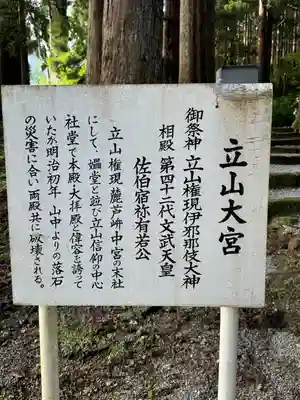 立山大宮
御祭神 立山権現伊邪那伎大神
相殿 第四十二代文武天皇
佐伯宿祢有若公
立山権現麓芦峅中宮の末社
にして、媼堂と並び立山信仰の中心
社堂で本殿・大拝殿と偉容を誇って
いたが明治初年 山中よりの落石
の災害に合い両殿共に破壊される。